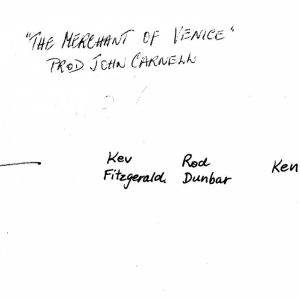 "THE MERCHANT OF VENICE"
PROD JOHN CARNELL
Kev Rod Ken
Fitzgerald. Dunbar